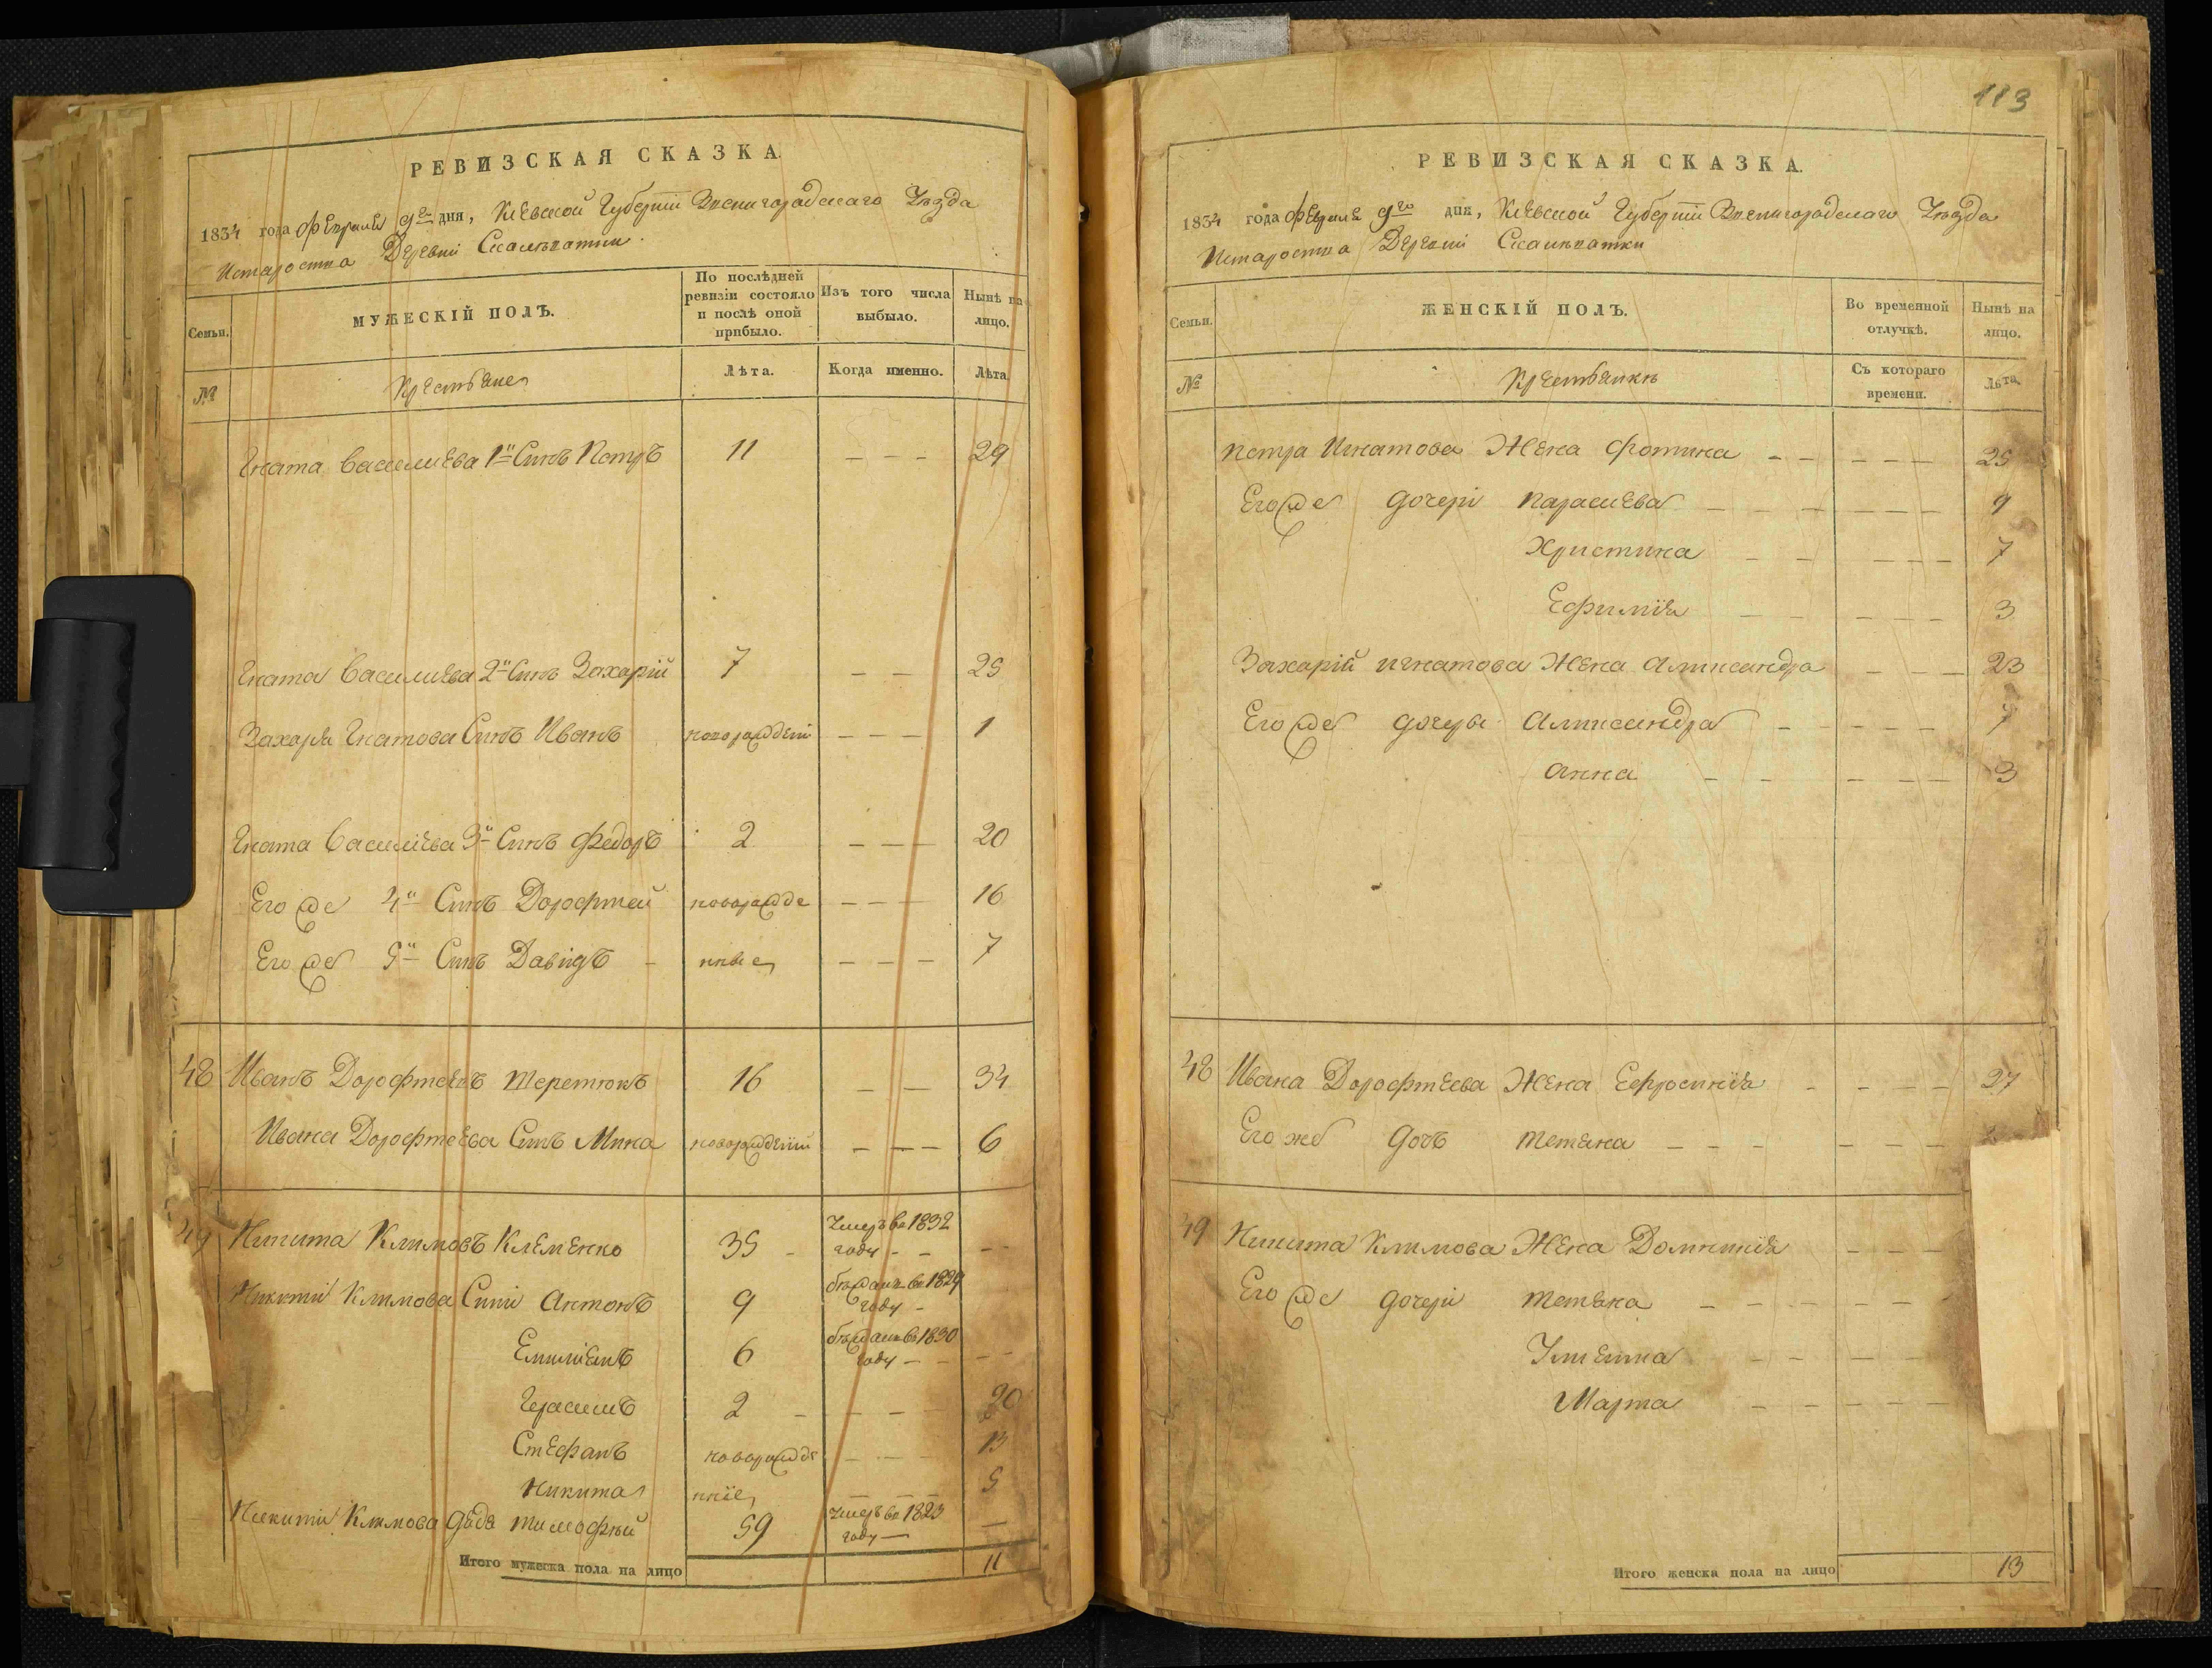 РЕВИЗСКАЯ СКАЗКА.
1834 года Февраля 9го дня, Киевской Губернiи Звенигородскаго Уезда
Староства Деревнi
Семьи.
МУЖЕСКIЙ ПОЛЪ.
По послѣдней ревизiи состояло и послѣ оной прибыло.
Изъ того числа выбыло.
Нынѣ на лицо.
№
Крестьяне
Лѣта.
Когда именно.
Лѣта.
Гната Василиева 1й Синъ Петръ 11 - - - 29
Гната Василиева 2й Синъ Захарiй 7 - - 25
Захарiя Гнатова Синъ Иванъ новорожденi - - - 1
Гната Василiева 3й Синъ Федоръ 2 - - - 20
Его же 4й Синъ Дорофтей новорожде - - - 16
Его же 5й Синъ Давiдъ - нные - - - 7
48 Иванъ Дорофтеевъ Теретюкъ 16 - - 34
Ивана Дорофтеева Синъ Мина новорожденiй - - - 6
49 Никита Климовъ Клеменко 35 - Умеръ во 1832 году - - - -
Никити Климова Сини Антонъ 9 бежалъ во 1829 году -
Емилiянъ 6 бежалъ во 1830 году - - - -
Герасимъ 2 - - - 20
Стефанъ новорожде - - - 13
Никита ннiе - - - 5
Никити Климова дядя Тимофѣй 59 Умеръ во 1823 году - -
Итого мужеска пола на лицо 11
113
РЕВИЗСКАЯ СКАЗКА.
1834 года Февраля 9го дня, Киевской Губернiи Звенигородскаго Уезда
Староства Деревнi
Семьи.
ЖЕНСКIЙ ПОЛЪ.
Во временной отлучкѣ.
Нынѣ на лицо.
№
Крестьянки
Съ котораго времени.
Лѣта.
Петра Игнатова Жена Фотина - - - - - 25
Его же дочерi Параскева - - - - - - 9
Христина - - - - - 7
Ефимiя - - - - - 3
Захарiй игнатова Жена Аликсандра - - - 23
Его же дочеры Аликсандра - - - - - 7
Анна - - - - - 3
48 Ивана Дорофтеева Жена Ефросинiя - - - - 27
Его же дочъ Тетяна - - - - - -
49 Никита Климова Жена Домникiя - - -
Его же дочерi Тетяна - - - - - -
Марта - - - - -
Итого женска пола на лицо 13